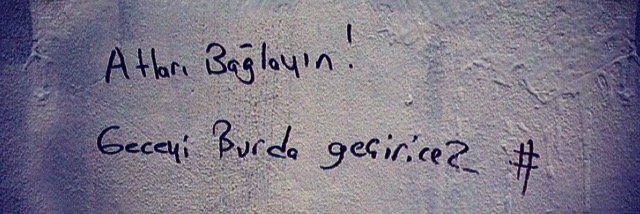 Atları Bağlayın!
Geceyi Burda geçiricez #